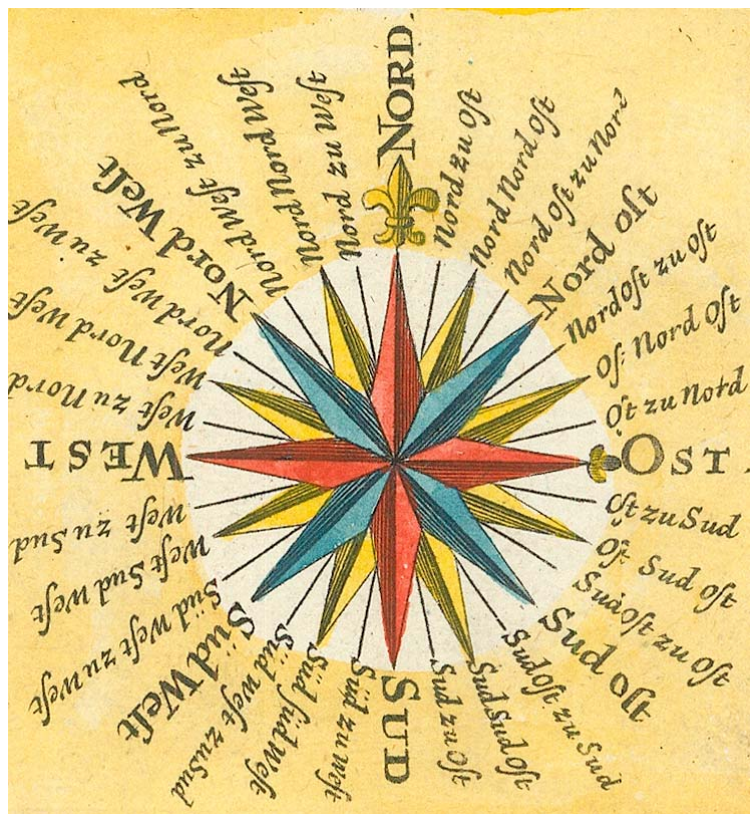 NORD.
Nord zu Oſt
Nord Nord Oſt
Nord Oſt zu Nord
Nord Oſt
Nordoſt zu Oſt
Oſ: Nord Oſt
Oſt zu Nord
OST
Oſt zu Sud
Oſ: Sud oſt
Sudoſt zu Oſt
Sud Oſt
Sudoſt zu Sud
Sud Sud Oſt
Sud zu Oſt
SUD
Süd zu Weſt
Süd ſud Weſt
Süd Weſt zu Sud
Süd Weſt
Süd Weſt zu Weſt
Weſt Sud Weſt
Weſt zu Sud
WEST
Weſt zu Nord
Weſt Nord Weſt
Nord Weſt zu Weſt
Nord Weſt
Nord Weſt zu Nord
Nord Nord Weſt
Nord zu Weſt